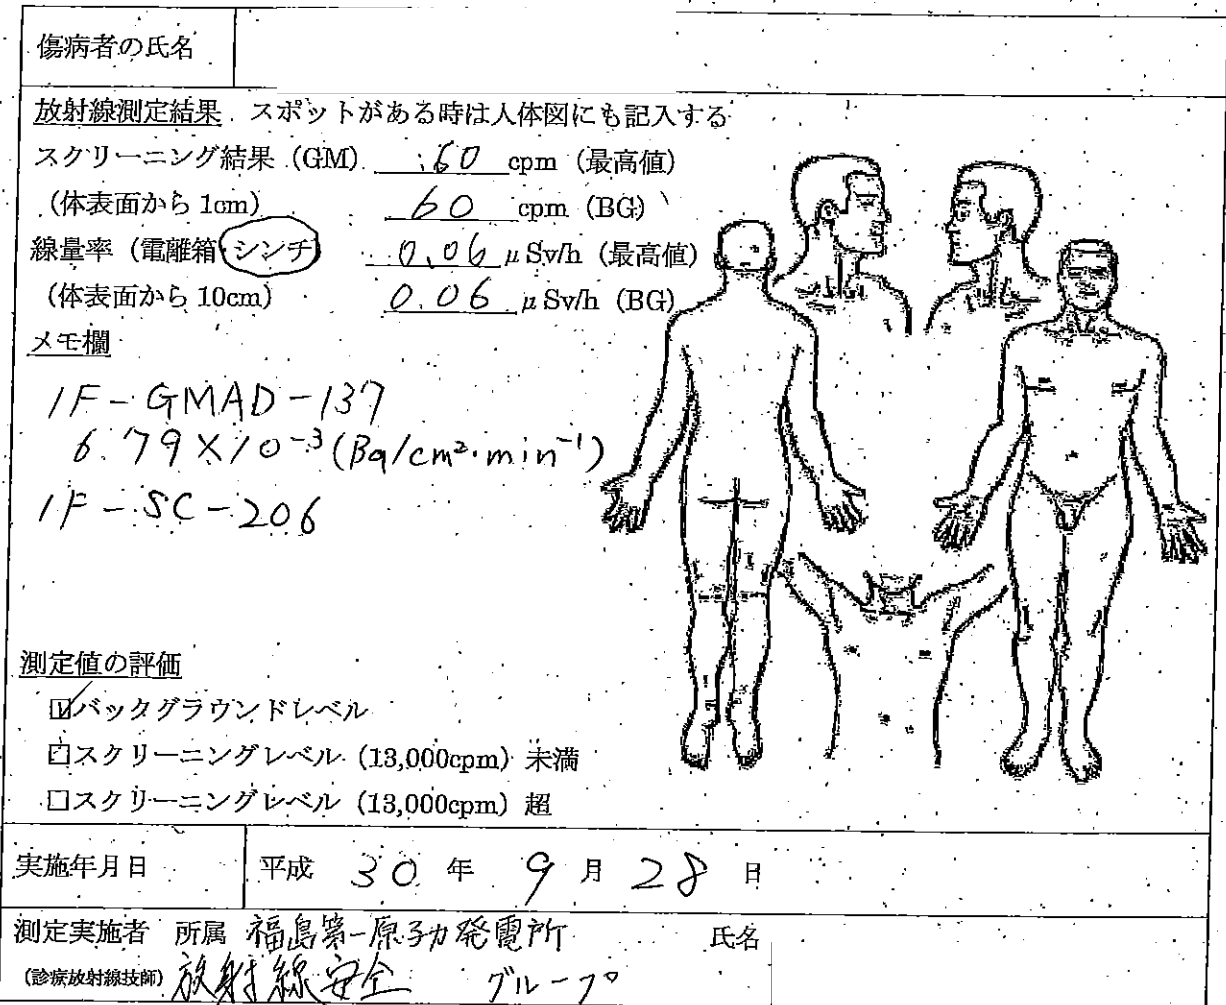 傷病者の氏名
放射線測定結果 スポットがある時は人体図にも記入する
スクリーニング結果 (GM) 60 cpm (最高値)
(体表面から 1cm) 60 cpm (BG)
線量率 (電離箱 シンチ) 0.06 μSv/h (最高値)
(体表面から 10cm) 0.06 μSv/h (BG)
メモ欄
1F-GMAD-137
6.79×10⁻³(Bq/cm²・min⁻¹)
1F-SC-206
測定値の評価
☑バックグラウンドレベル
□スクリーニングレベル (13,000cpm) 未満
□スクリーニングレベル (13,000cpm) 超
実施年月日 平成 30 年 9 月 28 日
測定実施者 所属 福島第一原子力発電所 氏名
(診療放射線技師) 放射線安全 グループ